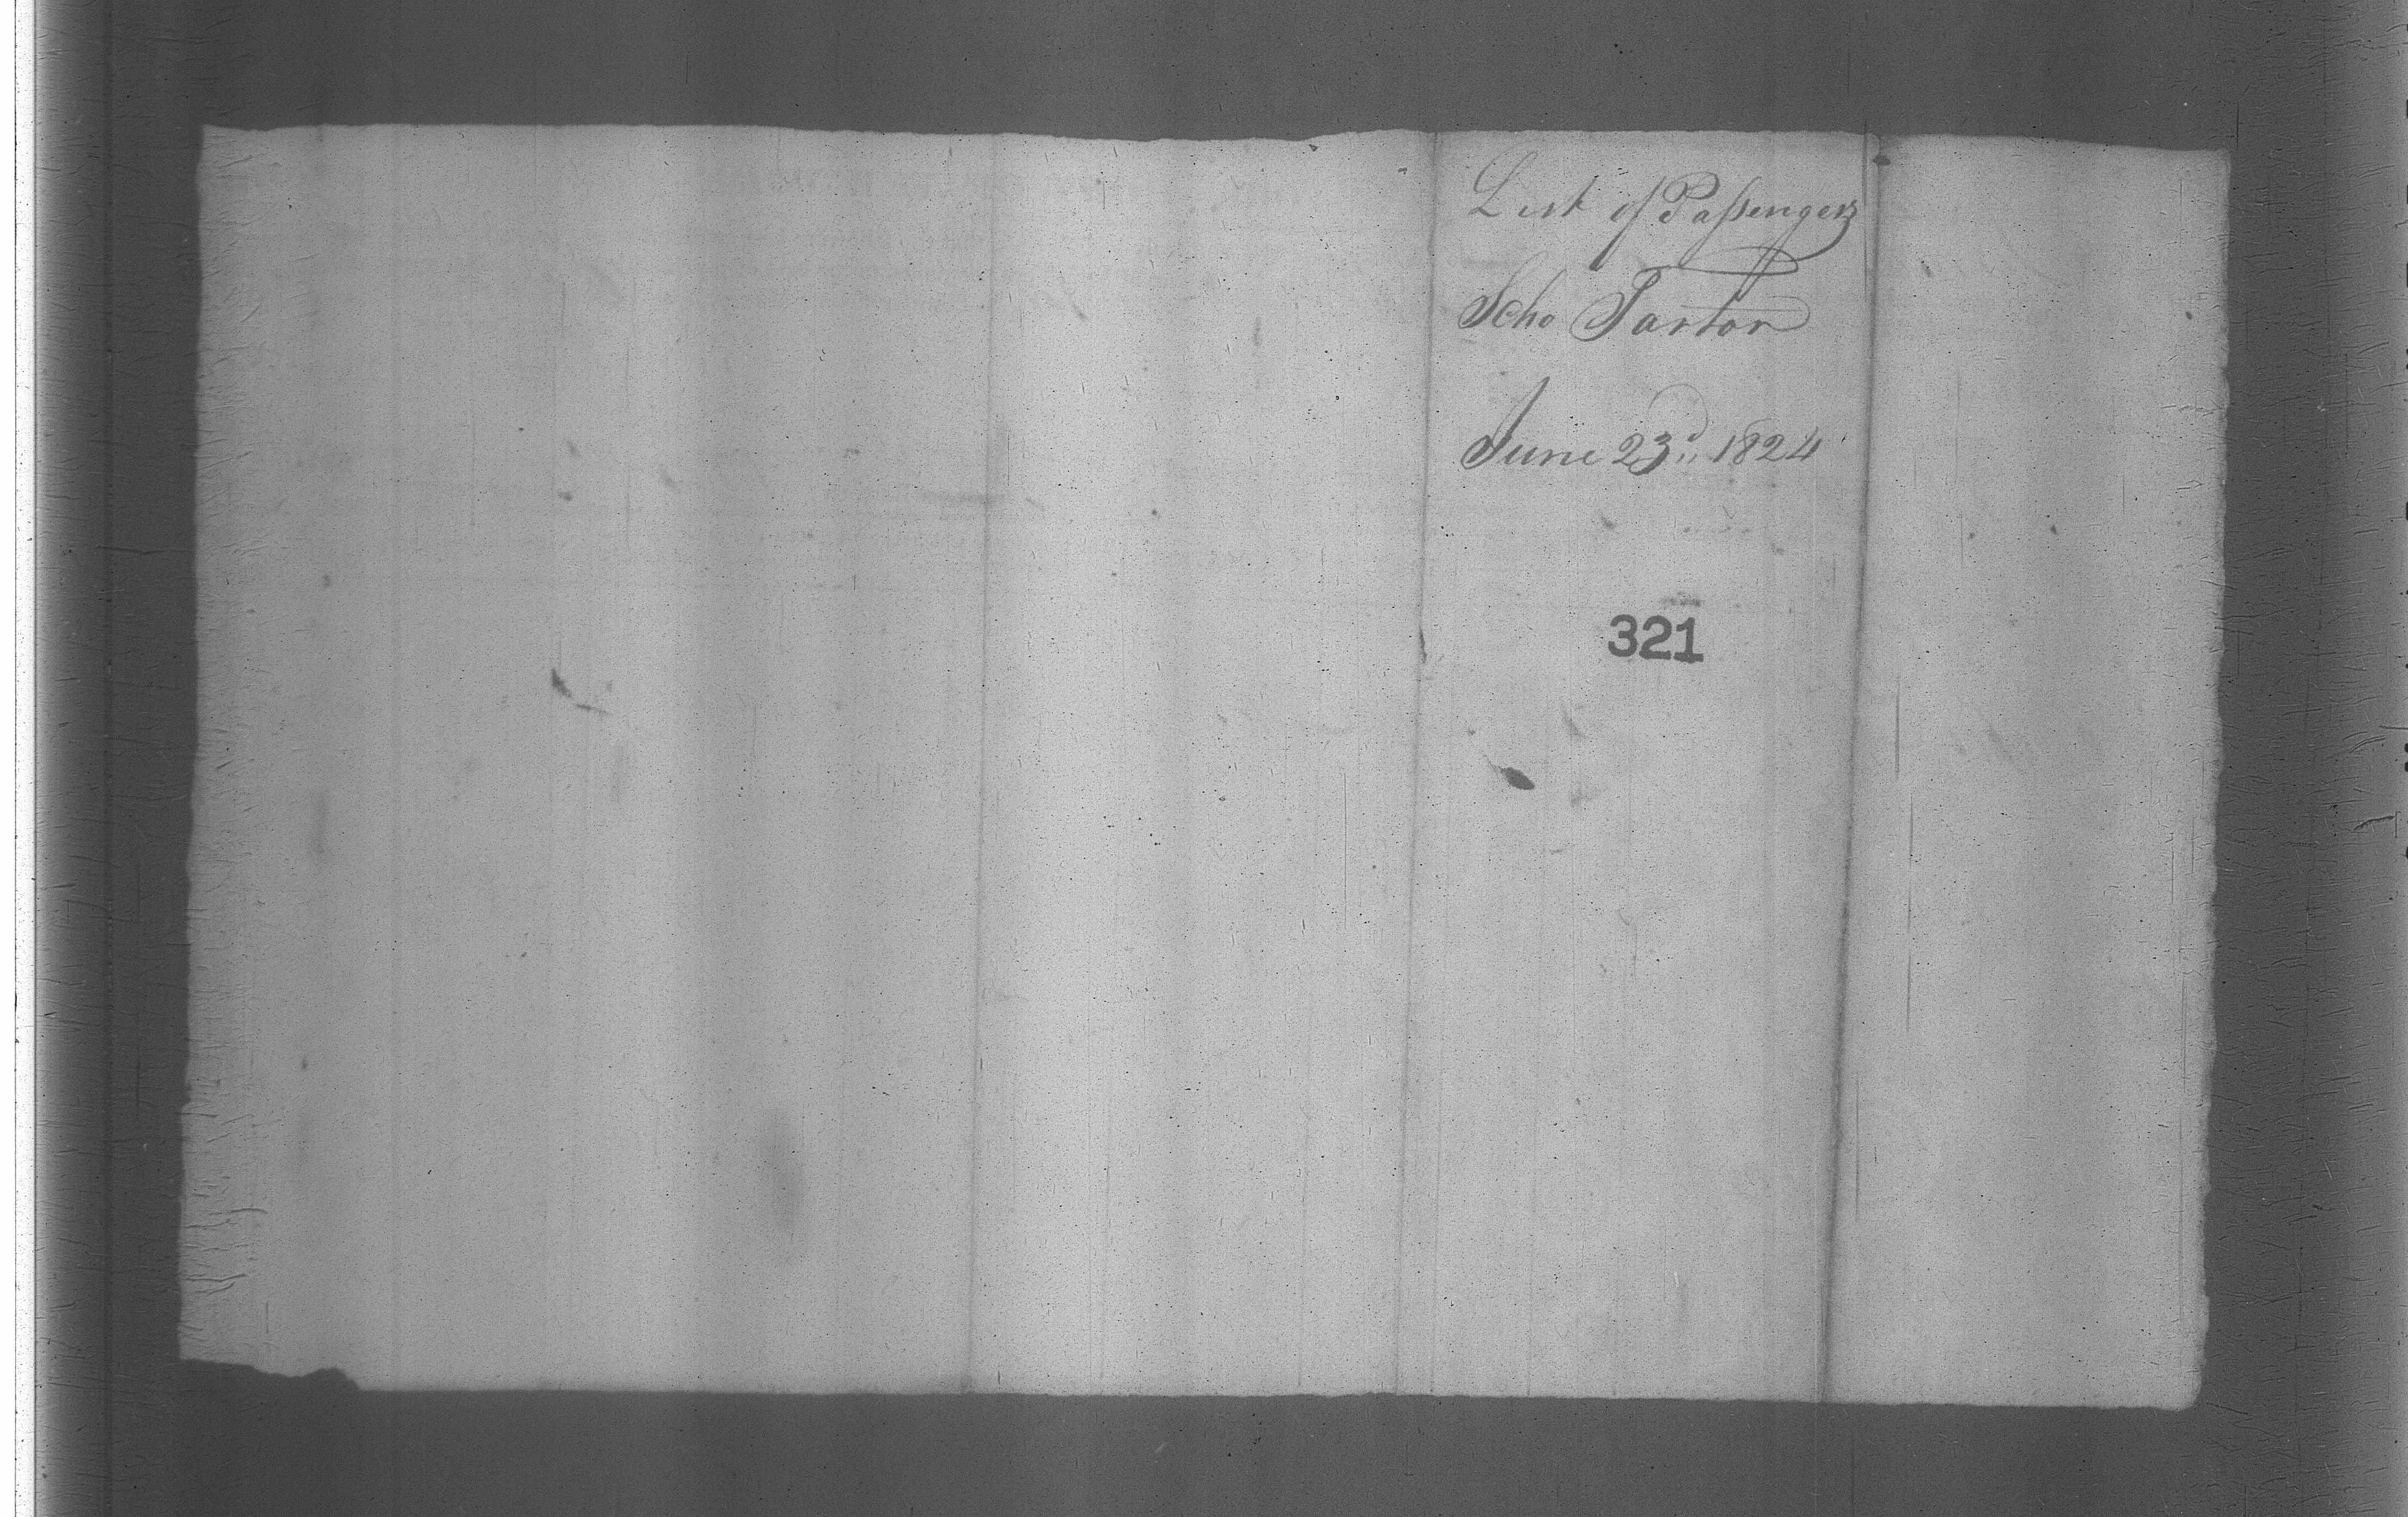 List of Passengers
Scho Tartor
June 23d. 1824
321